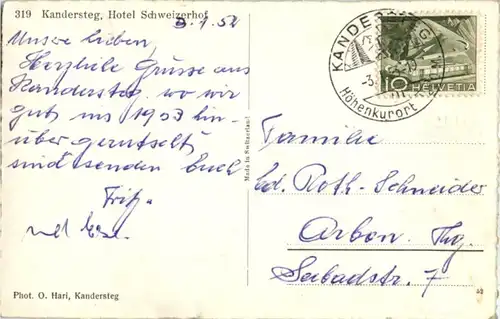 319 Kandersteg, Hotel Schweizerhof
3.1.52
Unsre Lieben,
Herzliche Grüsse aus
Kandersteg wo wir
gut ins 1953 hin-
über gerutscht
sind senden Euch
Fritz
und
Made in Switzerland
Phot. O. Hari, Kandersteg
KANDERSTEG
Höhenkurort
10
HELVETIA
Familie
Ed. Roth-Schneider
Arbon. Thg.
Seebadstr. 7